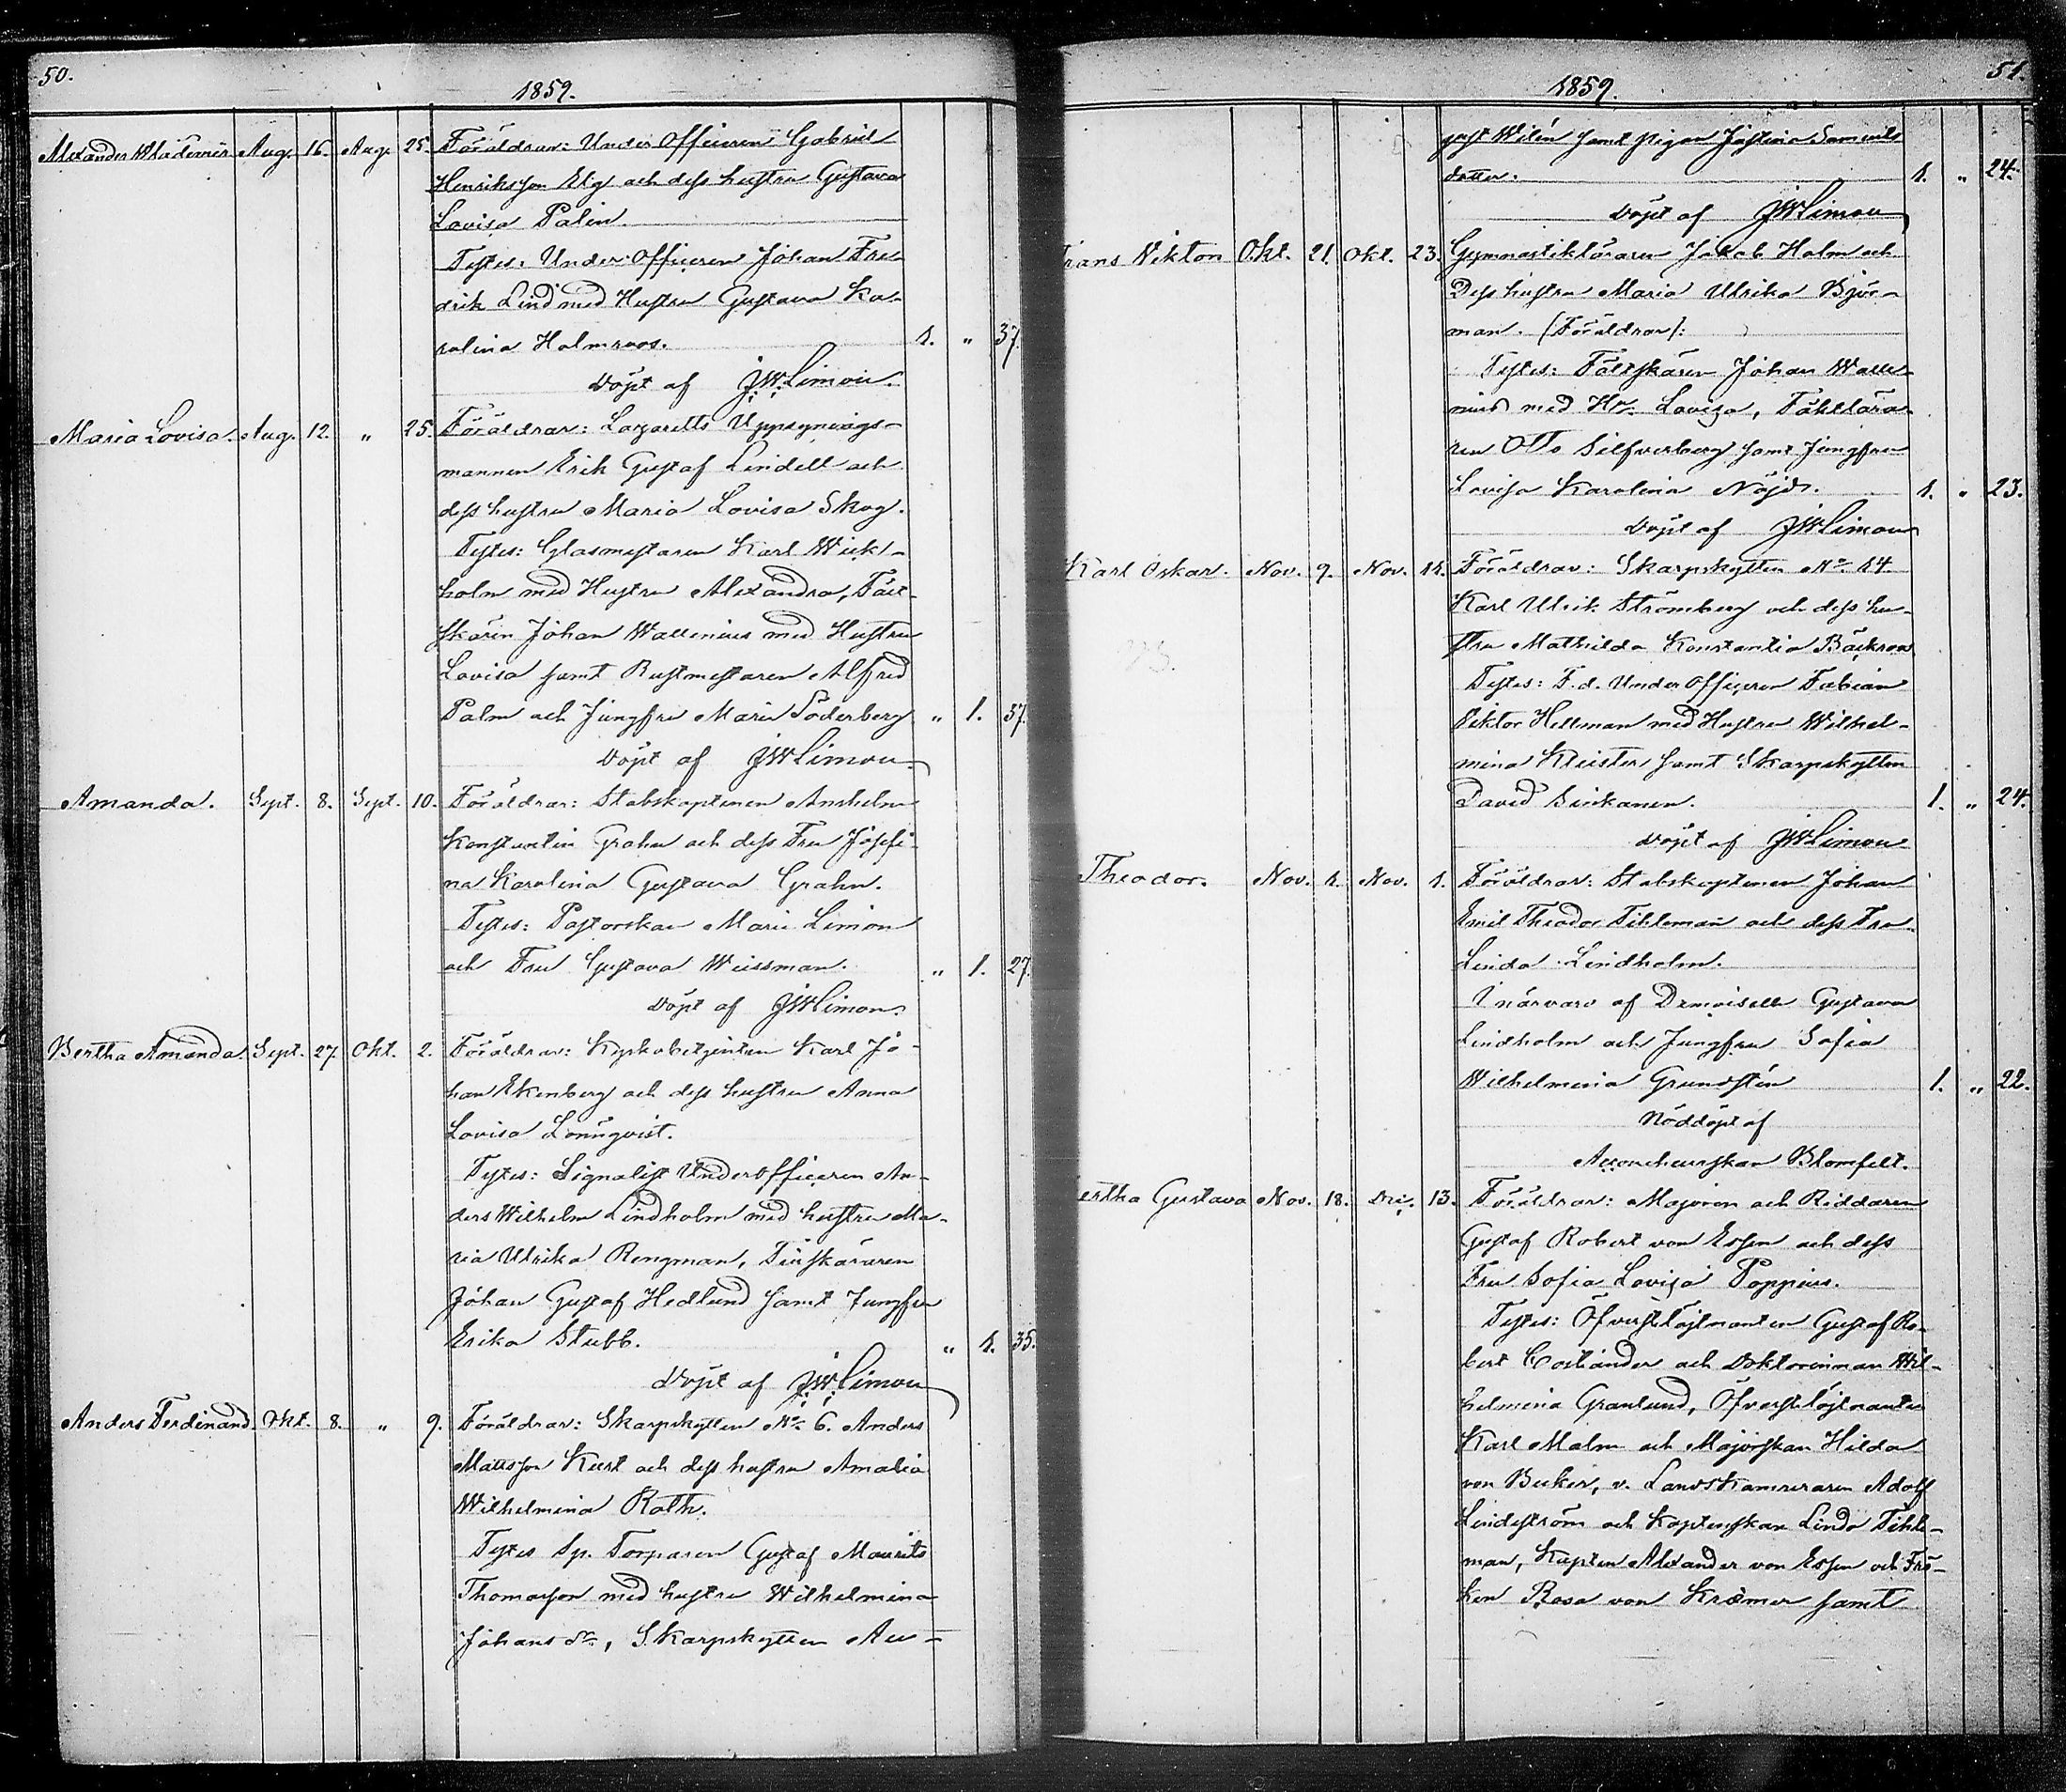 50.
1859.
Alexander Wladimir Aug. 16. Aug. 25. Föräldrar: Under Officeren Gabriel
Henriksson Elg och dess hustru Gustava
Lovisa Palin.
Testes: Under Officeren Johan Fre-
drik Lind med Hustru Gustava Ka-
rolina Holmroos. 1. " 37.
Döpt af JWLimon.
Maria Lovisa. Aug. 12. " 25. Föräldrar: Lazaretts Uppsynings-
mannen Erik Gustaf Lindell och
dess hustru Maria Lovisa Skog.
Testes: Glasmästaren Karl Wick-
holm med Hustru Alexandra, Fält-
skären Johan Wallenius med Hustru
Lovisa samt Rustmästaren Alfred
Palm och Jungfru Maria Söderberg " 1. 37.
Döpt af JWLimon.
Amanda. Sept. 8. Sept. 10. Föräldrar: Stabskaptenen Anshelm
Konstantin Grahn och dess Fru Josefi-
na Karolina Gustava Grahn.
Testes: Pastorskan Marie Limon
och Fru Gustava Weissman. " 1. 27.
Döpt af JWLimon.
Bertha Amanda. Sept. 27. Okt. 2. Föräldrar: Kyrkobetjenten Karl Jo-
han Ekenberg och dess hustru Anna
Lovisa Lönnqvist.
Testes: Signalist Underofficeren An-
ders Wilhelm Lindholm med hustru Ma-
ria Ulrika Rengman,
Johan Gustaf Hedlund samt Jungfru
Erika Stubb. " 1. 35.
Döpt af JWLimon
Anders Ferdinand. Okt. 8. " 9. Föräldrar: Skarpskytten No 6. Anders
Mattsson Kurt och dess hustru Amalia
Wilhelmina Roth.
Testes Sp. Torparen Gustaf Maurits
Thomasson med hustru Wilhelmina
Johansdr, Skarpskytten Au-
51.
1859.
gust Wilén samt pigan Justina Samuels
dotter. 1. " 24.
Döpt af JWLimon
Frans Viktor Okt. 21. Okt. 23. Gymnastikläraren Jakob Holm och
Dess hustru Maria Ulrika Björ-
man. (Föräldrar):
Testes: Fältskären Johan Walle-
nius med Hu. Lovisa, Fäktlära-
ren Otto Silfverberg samt Jungfru
Lovisa Karolina Nöjd. 1. " 23.
Döpt af JWLimon
Karl Oskar. Nov. 9. Nov. 14. Föräldrar: Skarpskytten No 14
Karl Ulrik Strömberg och dess hu-
stru Mathilda Konstantia Bäckroos
Testes: F.d. Under Officeren Fabian
Viktor Hellman med Hustru Wilhel-
mina Kleister samt Skarpskytten
David Sinkanen. 1. " 24.
Döpt af JWLimon
Theodor. Nov. 1. Nov. 1. Föräldrar: Stabskaptenen Johan
Emil Theodor Tihleman och dess Fru
Linda Lindholm.
I närvaro af Demoiselle Gustava
Lindholm och Jungfru Sofia
Wilhelmina Grundstén 1. " 22.
Nöddöpt af
Accoucheurskan Blomfelt.
Bertha Gustava Nov. 18. Dec. 13. Föräldrar: Majoren och Riddaren
Gustaf Robert von Essen och dess
Fru Sofia Lovisa Poppius.
Testes: Öfverstelöjtnanten Gustaf Ro-
bert Costiander och Doktorinnan Wil-
helmina Granlund, Öfverstelöjtnanten
Karl Malm och Majorskan Hilda
von Becker, v. Landskamreraren Adolf
Lindeström och Kaptenskan Linda Tihle-
man, Kapten Alexander von Essen och Frö-
ken Rosa von Kræmer samt